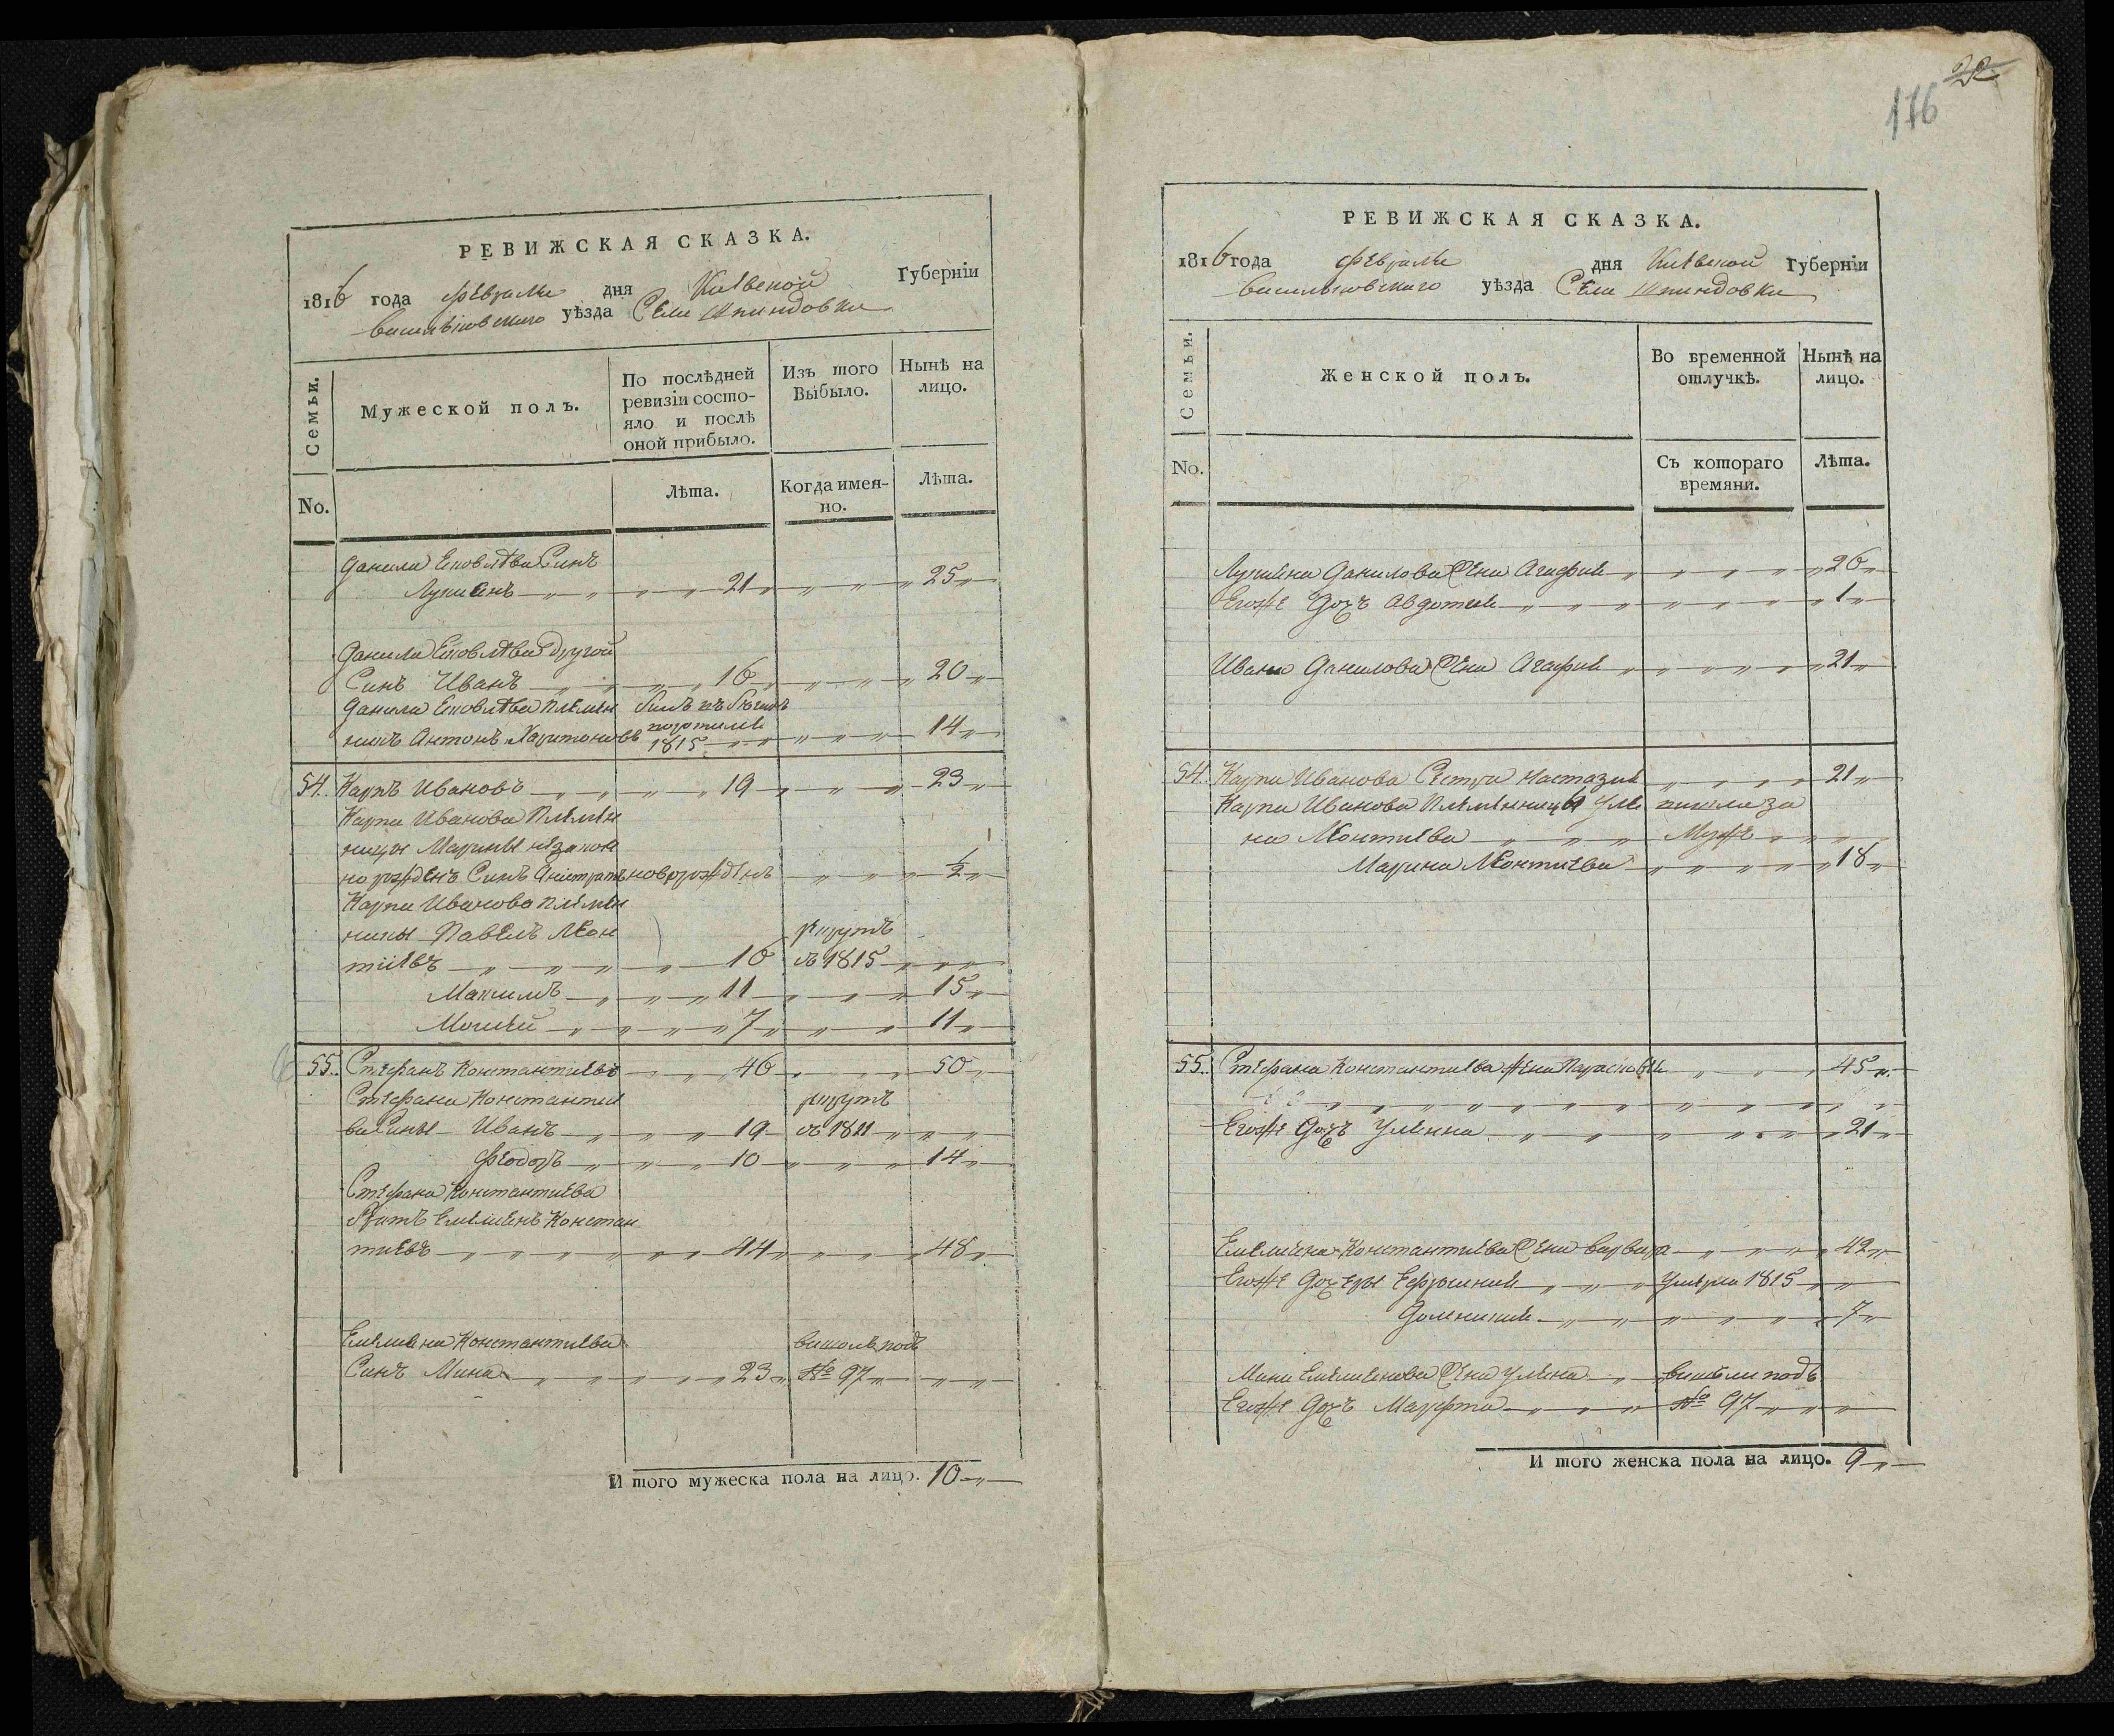 22
176
РЕВИЖСКАЯ СКАЗКА.
1816 года февраля дня Киевской Губерніи
васильковского уѣзда Села Шпиндовки
Семьи. Мужеской полъ. По послѣдней ревизіи состояло и послѣ оной прибыло. Изъ того Выбыло. Нынѣ на лицо.
No. Лѣта. Когда именно. Лѣта.
Данила Ековлѣва Синъ
Лукиянъ 21 25
Данила Ековлѣва другой
Синъ Иванъ 16 20
Данила Ековлѣва племѣн
никъ Антонъ Харитоновъ 1815 14
54. Карпъ Ивановъ 19 23
Карпа Иванова племѣн
ницы Марины незакон
но рожденъ Синъ новорожденъ 1/2
Карпа Иванова племѣн
ники Павелъ Леон рекрутъ
тіевъ 16 въ 1815
Макимъ 11 15
Мосѣй 7 11
55. Стефанъ Константиевъ 46 50
Стефана Константие рекрутъ
ва Сины Иванъ 19 въ 1811
Феодоръ 10 14
Стефана Константиева
братъ Емелиянъ Констан
тиевъ 44 48
Емелияна Константиева вишолъ подъ
Синъ Мина 23 № 97
И того мужеска пола на лицо. 10
РЕВИЖСКАЯ СКАЗКА.
1816 года февраля дня Киевской Губерніи
васильковского уѣзда Села Шпиндовки
Семьи. Женской полъ. Во временной отлучкѣ. Нынѣ на лицо.
No. Съ котораго времяни. Лѣта.
Лукияна Данилова Жена Агафия 26
Егоже дочъ Авдотия 1
Ивана Данилова Жена Агафия 21
54. Карпа Иванова Сестра Настазия 21
Карпа Иванова племѣнницы Уля пошла за
на Леонтиева Мужъ
Марина Леонтиева 18
55. Стефана Константиева Жена Парасковия 45
Егоже Дочъ Улянна 21
Емелияна Константиева Жена варвара 42
Егоже Дочери Ефросиния умерла 1815
Домникия 7
Мины Емелиянова Жена Уляна вишли подъ
Егоже Дочъ Марфта № 97
И того женска пола на лицо. 9